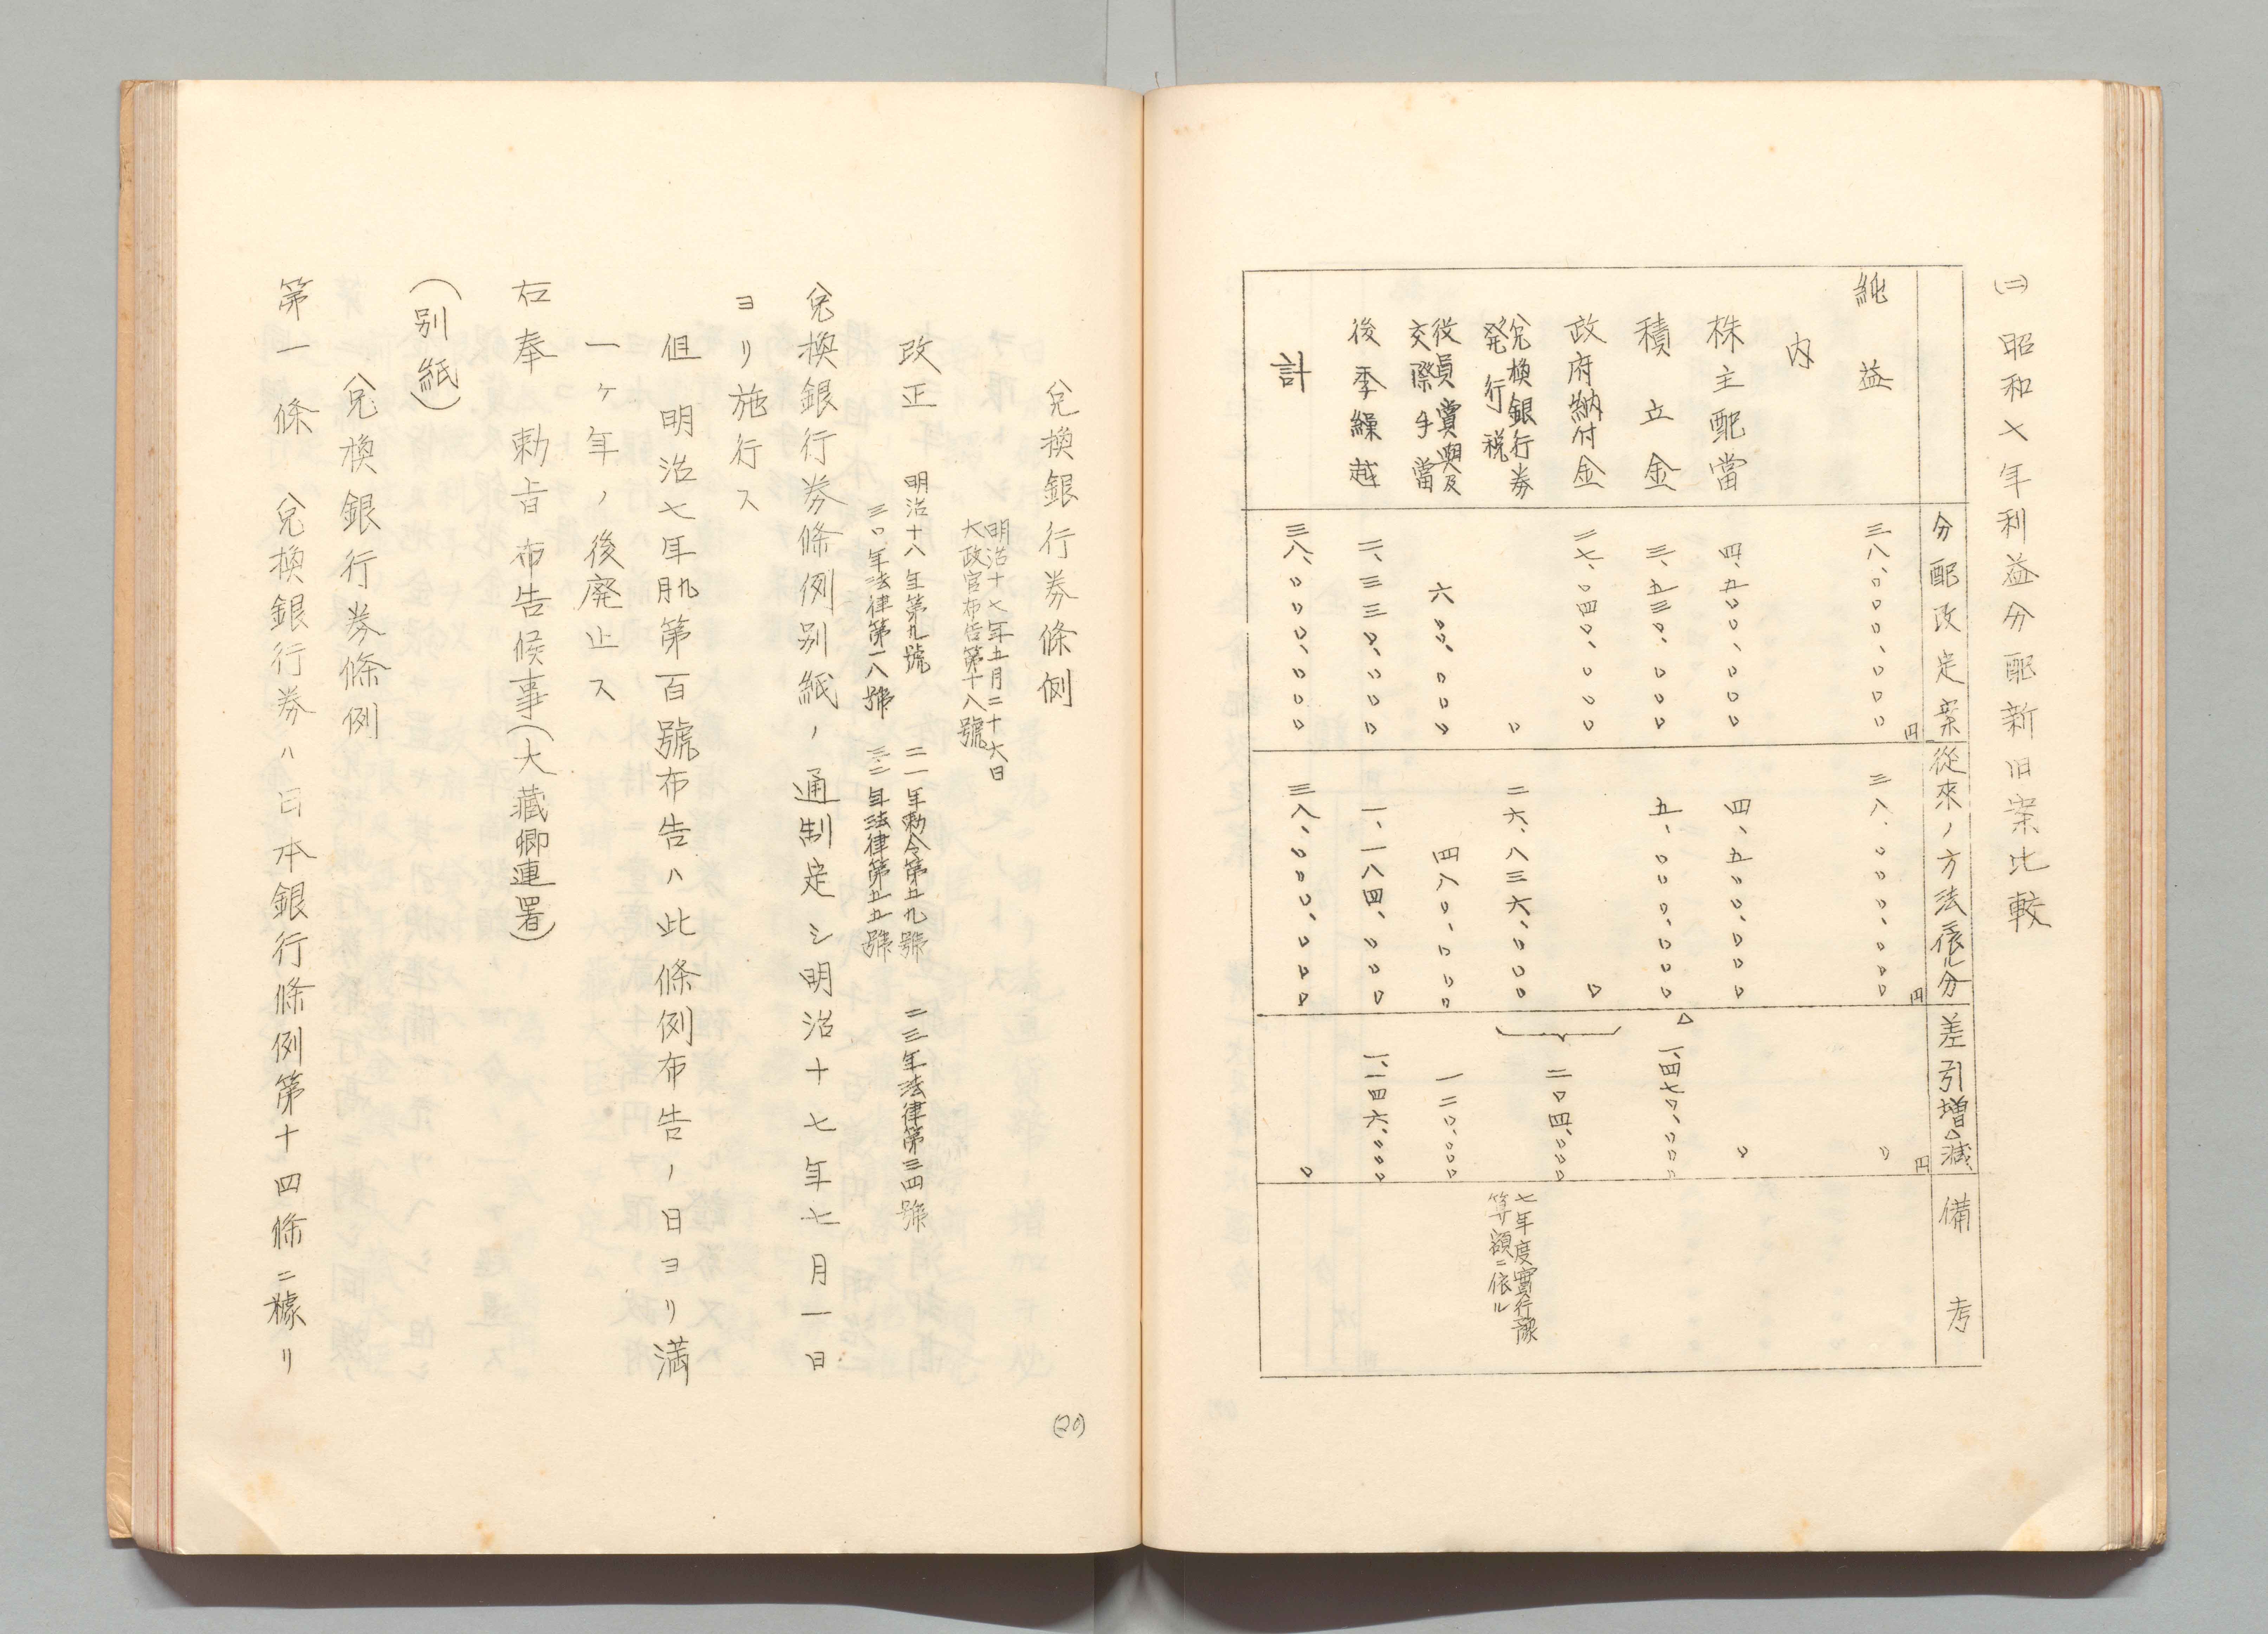 (二) 昭和七年利益分配新旧案比較
分配改定案
従來ノ方法ニ依ル分
差引増△減
備考
純益 三八、〇〇〇、〇〇〇円 三八、〇〇〇、〇〇〇円 〇円
内
株主配當 四、五〇〇、〇〇〇 四、五〇〇、〇〇〇 〇
積立金 三、五三〇、〇〇〇 五、〇〇〇、〇〇〇 △一、四七〇、〇〇〇
政府納付金 二七、〇四〇、〇〇〇 〇
兌換銀行券発行税 〇 二六、八三六、〇〇〇 二〇四、〇〇〇 七年度實行豫算額ニ依ル
役員賞與及交際手當 六〇〇、〇〇〇 四八〇、〇〇〇 一二〇、〇〇〇
後季繰越 二、三三〇、〇〇〇 一、一八四、〇〇〇 一、一四六、〇〇〇
計 三八、〇〇〇、〇〇〇 三八、〇〇〇、〇〇〇 〇
兌換銀行券條例
明治十七年五月二十六日
太政官布告第十八號
改正 明治十八年第九號 二一年勅令第五九號 二三年法律第三四號
三〇年法律第一八號 三二年法律第五五號
兌換銀行券條例別紙ノ通制定シ明治十七年七月一日
ヨリ施行ス
但 明治七年九月第百號布告ハ此條例布告ノ日ヨリ満
一ヶ年ノ後廃止ス
右奉勅旨布告候事(大藏卿連署)
(別紙)
兌換銀行券條例
第一條 兌換銀行券ハ日本銀行條例第十四條ニ據リ
(20)